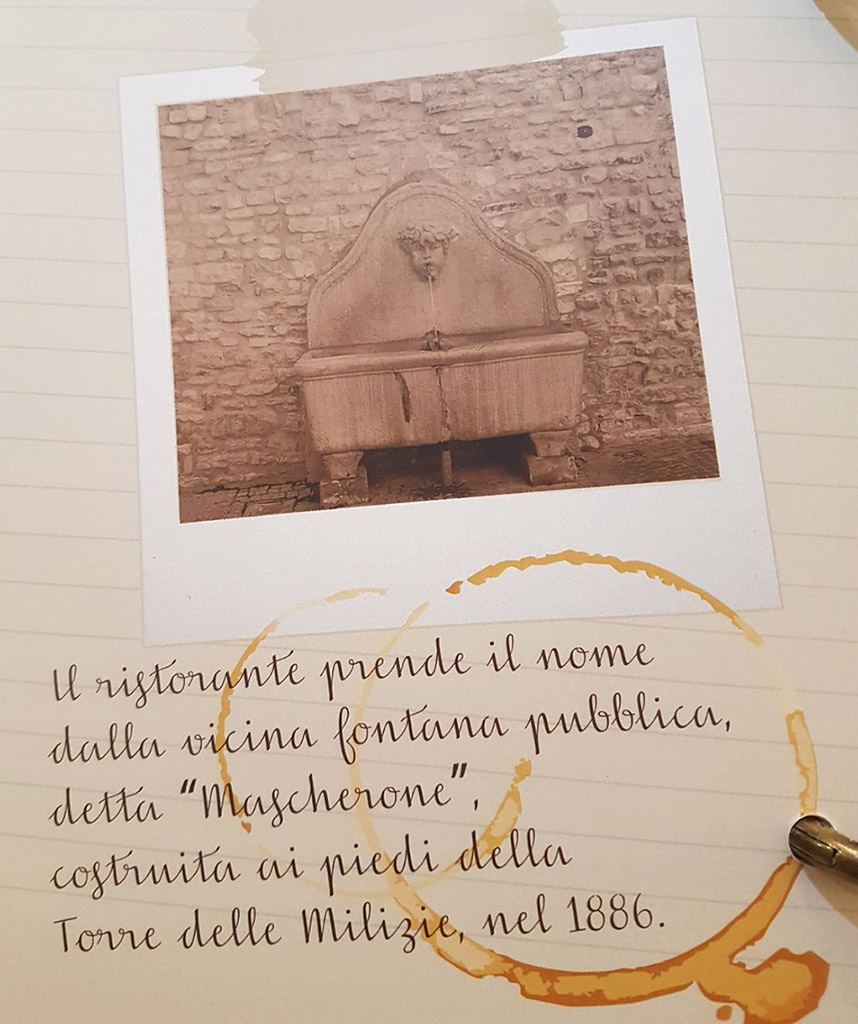 Il ristorante prende il nome
dalla vicina fontana pubblica,
detta "Mascherone",
costruita ai piedi della
Torre delle Milizie, nel 1886.